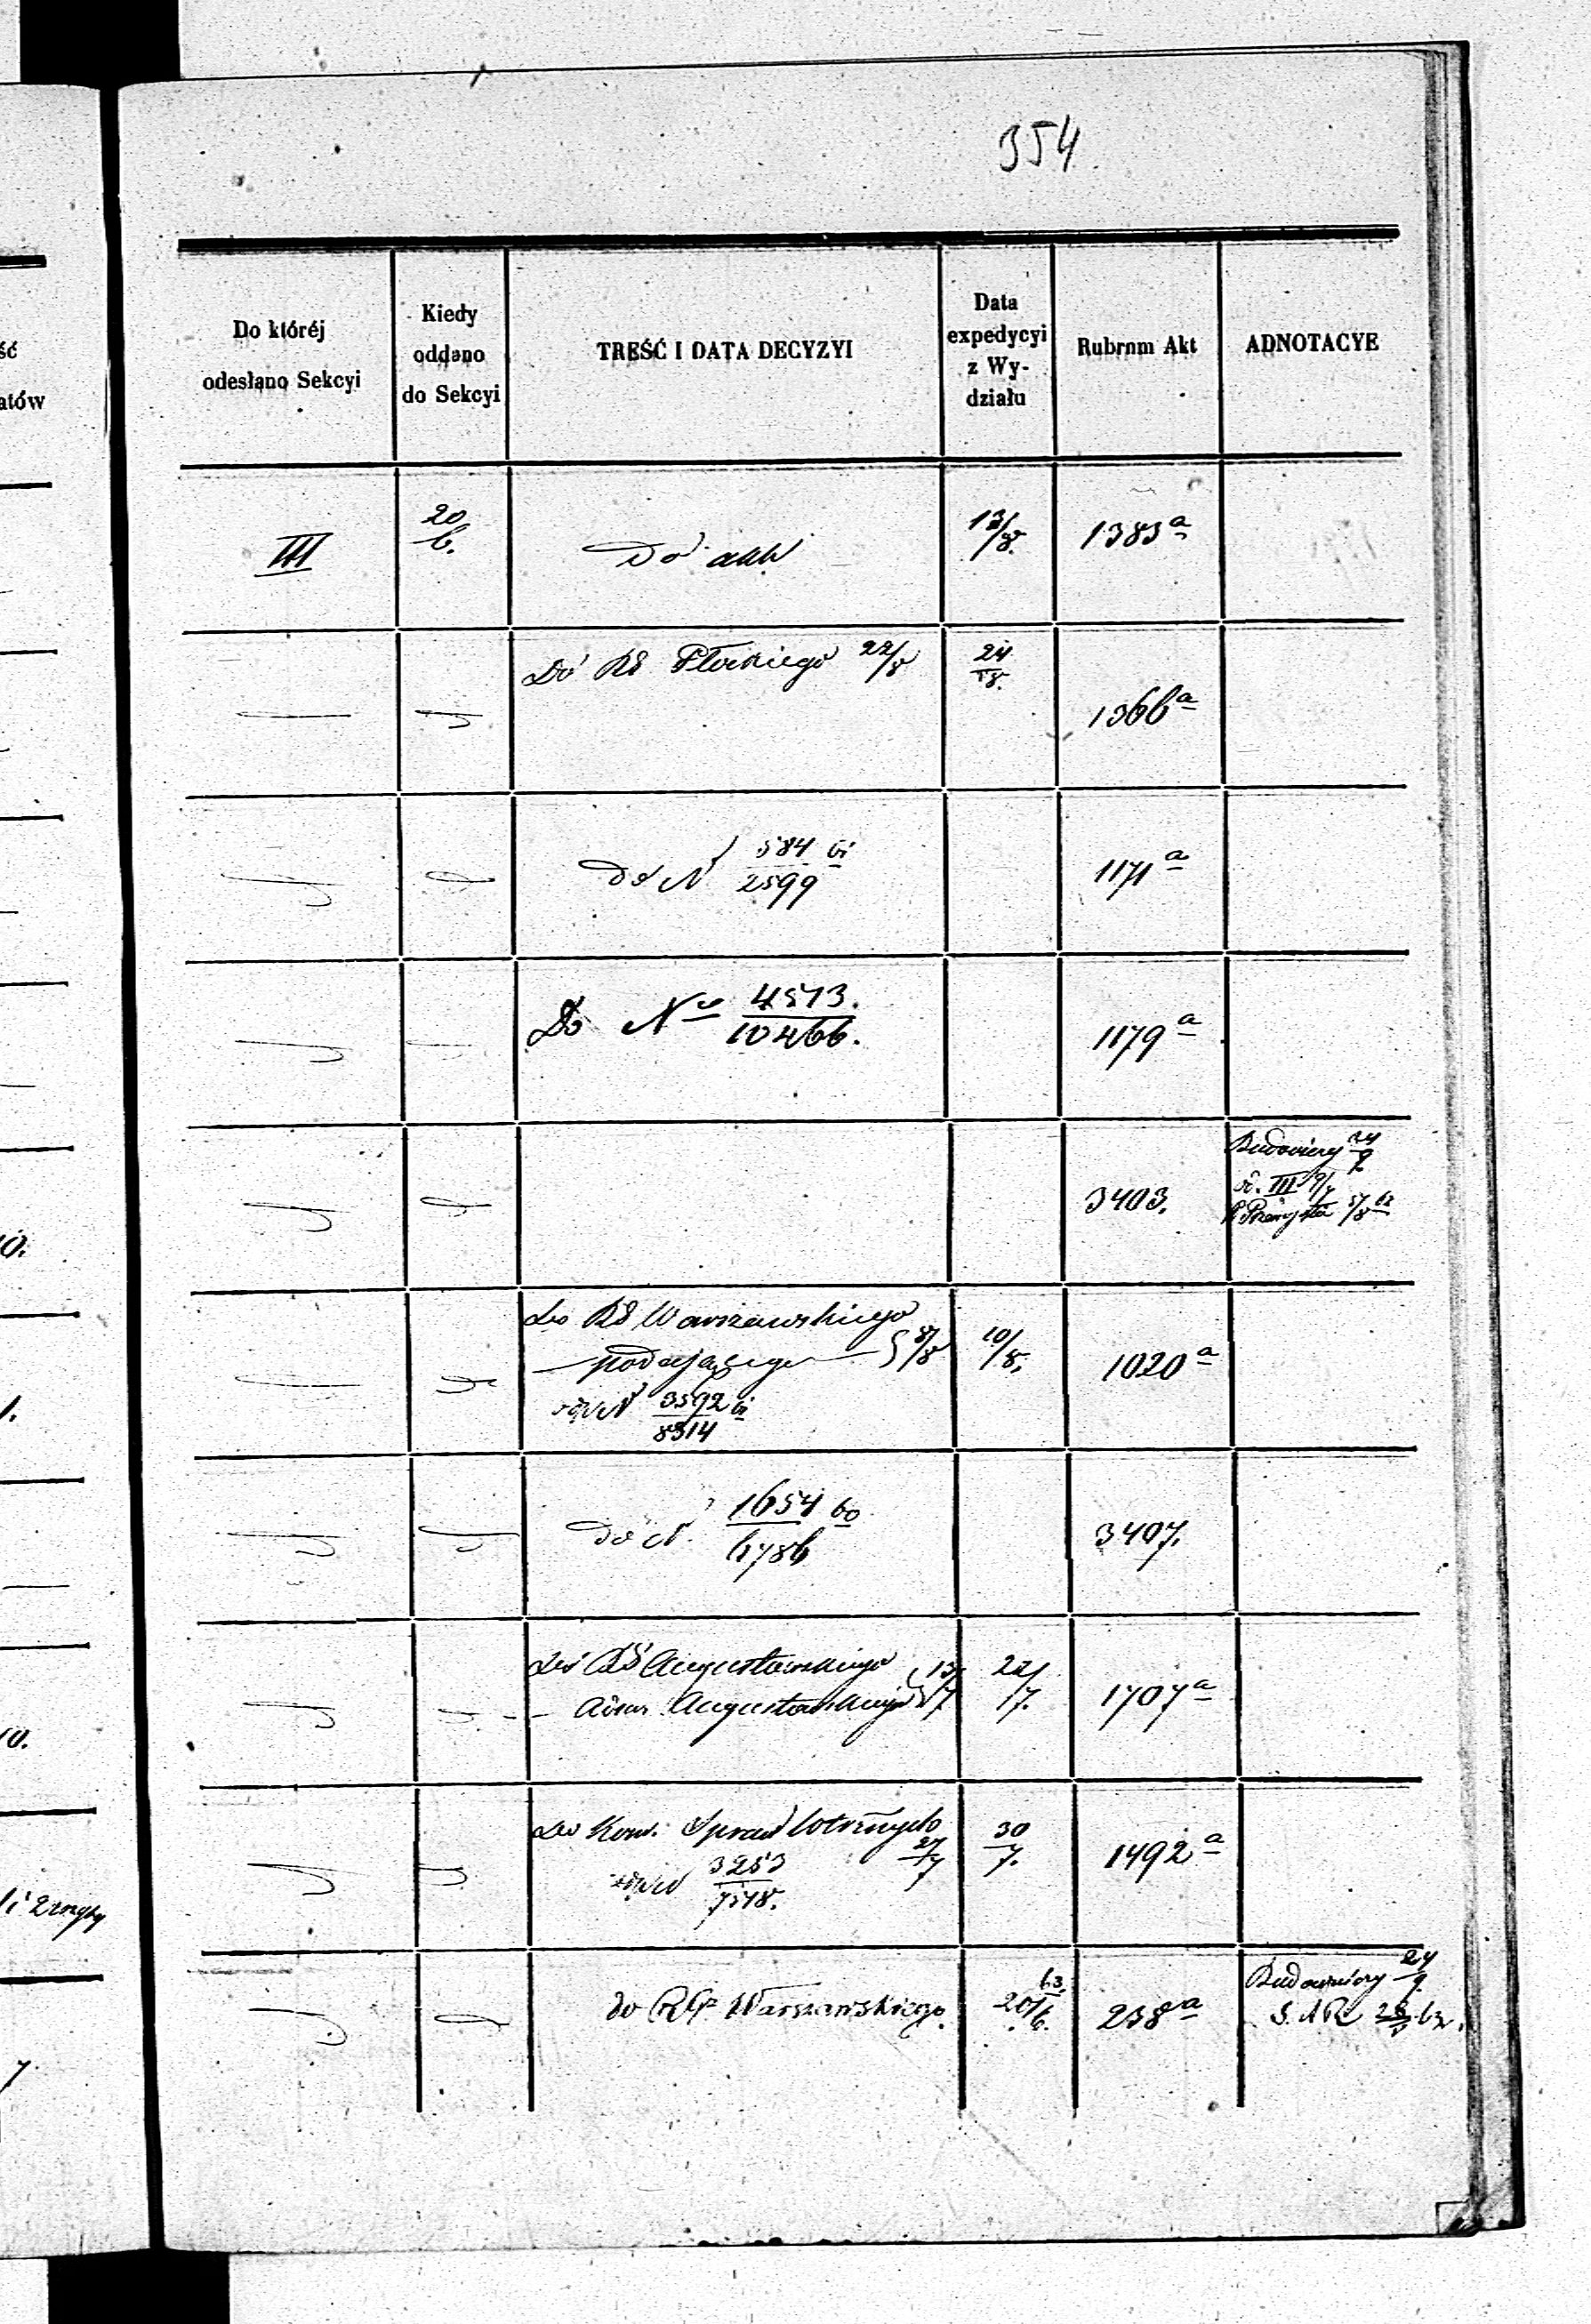 354
Do któréj
odesłano Sekcyi
Kiedy
oddano
do Sekcyi
TREŚĆ I DATA DECYZYI
Data
expedycyi
z Wy-
działu
Rubrum Akt
ADNOTACYE
III
20/6.
Do akt
13/8.
1383 a
Do RG Płockiego 22/8
24/8.
1366 a
do N 584/2599 61
1171 a
Do No 4513./10466.
1179 a
3403.
Budowniczy 24/9
S. III 9/7
Do RG Warszawskiego
podającego 8/8
3592/8314 61
10/8.
1020 a
do N. 1654/6786 60
3407.
Do RG Augustowskiego
Augustowskiego 13/7
22/7.
1707 a
Do Kom. Spraw Wewnętrznych
27/7
3253/7518.
30/7.
1492 a
do RG Warszawskiego.
63.
20/6.
238 a
Budowniczy 24/9.
ść
atów
10.
1.
10.
7